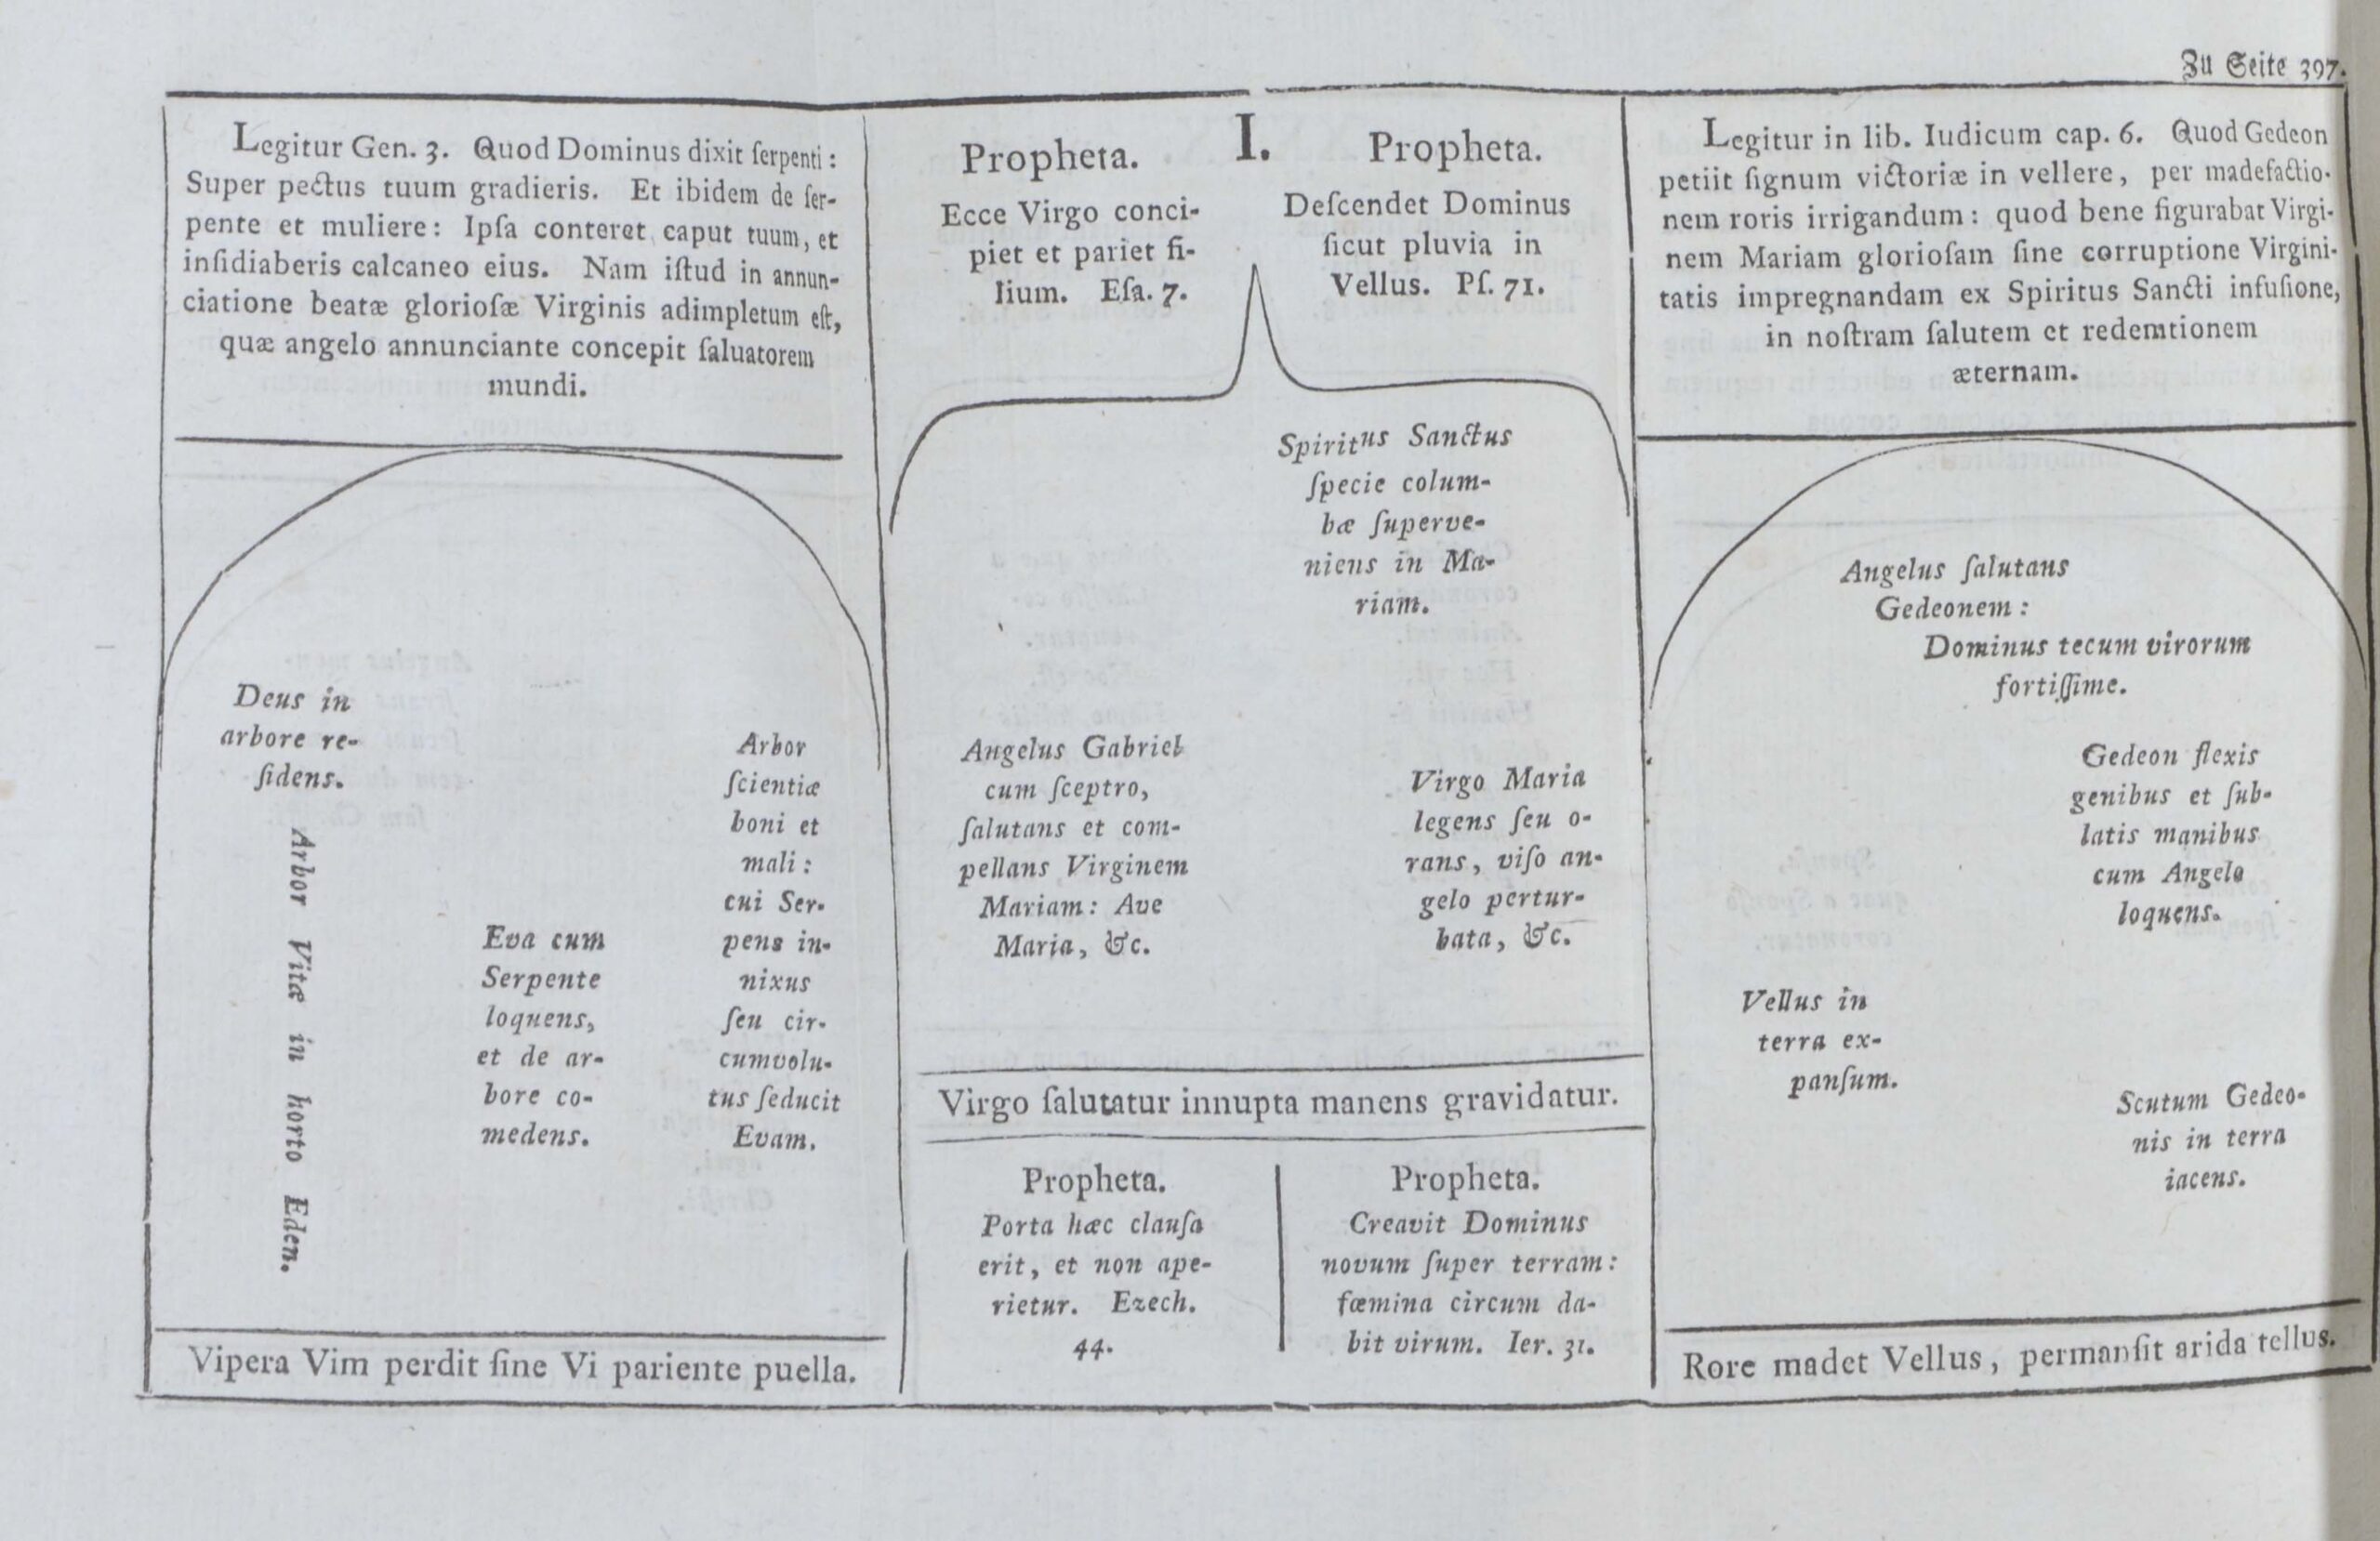 Zu Seite 397.
Legitur Gen. 3. Quod Dominus dixit ſerpenti:
Super pectus tuum gradieris. Et ibidem de ſer-
pente et muliere: Ipſa conteret caput tuum, et
inſidiaberis calcaneo eius. Nam iſtud in annun-
ciatione beatæ glorioſæ Virginis adimpletum eſt,
quæ angelo annunciante concepit ſaluatorem
mundi.
Deus in
arbore re-
ſidens.
Arbor Vitæ in horto Eden.
Eva cum
Serpente
loquens,
et de ar-
bore co-
medens.
Arbor
ſcientiæ
boni et
mali:
cui Ser-
pens in-
nixus
ſeu cir-
cumvolu-
tus ſeducit
Evam.
Vipera Vim perdit ſine Vi pariente puella.
I.
Propheta.
Ecce Virgo conci-
piet et pariet fi-
lium. Eſa. 7.
Propheta.
Deſcendet Dominus
ſicut pluvia in
Vellus. Pſ. 71.
Spiritus Sanctus
ſpecie colum-
bæ ſuperve-
niens in Ma-
riam.
Angelus Gabriel
cum ſceptro,
ſalutans et com-
pellans Virginem
Mariam: Ave
Maria, &c.
Virgo Maria
legens ſeu o-
rans, viſo an-
gelo pertur-
bata, &c.
Virgo ſalutatur innupta manens gravidatur.
Propheta.
Porta hæc clauſa
erit, et non ape-
rietur. Ezech.
44.
Propheta.
Creavit Dominus
novum ſuper terram:
fœmina circum da-
bit virum. Ier. 31.
Legitur in lib. Iudicum cap. 6. Quod Gedeon
petiit ſignum victoriæ in vellere, per madefactio-
nem roris irrigandum: quod bene figurabat Virgi-
nem Mariam glorioſam ſine corruptione Virgini-
tatis impregnandam ex Spiritus Sancti infuſione,
in noſtram ſalutem et redemtionem
æternam.
Angelus ſalutans
Gedeonem:
Dominus tecum virorum
fortiſſime.
Gedeon flexis
genibus et ſub-
latis manibus
cum Angelo
loquens.
Vellus in
terra ex-
panſum.
Scutum Gedeo-
nis in terra
iacens.
Rore madet Vellus, permanſit arida tellus.